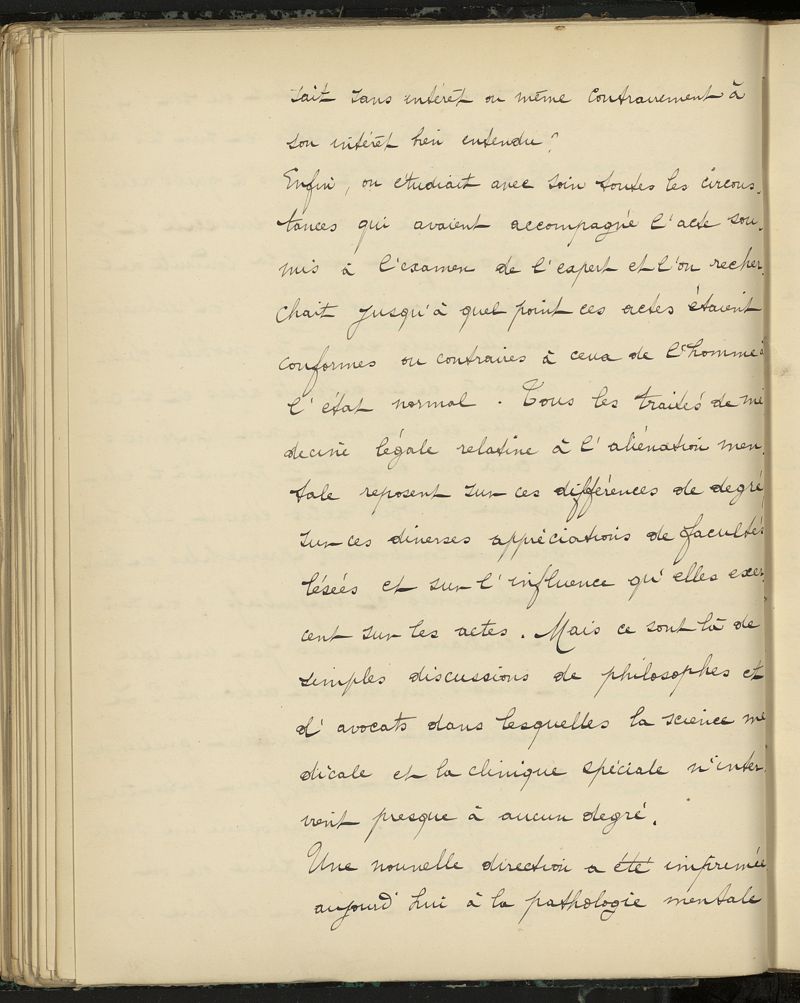 sait sans intérêt ou même contrairement à
son intérêt bien entendu?
Enfin, on étudiait avec soin toutes les circons-
tances qui avaient accompagné l'acte sou-
mis à l'examen de l'expert et l'on recher-
chait jusqu'à quel point ces actes étaient
conformes ou contraires à ceux de l'homme à
l'état normal. Tous les traités de mé
decine légale relative à l'aliénation men-
tale reposent sur ces différences de degré
sur ces diverses appréciations de facultés
lésées et sur l'influence qu'elles exer-
cent sur les actes. Mais ce sont là de
simples discussions de philosophes et
d'avocats dans lesquelles la science mé
dicale et la clinique spéciale n'inter-
vient presque à aucun degré.
Une nouvelle direction a été imprimée
aujourd'hui à la pathologie mentale